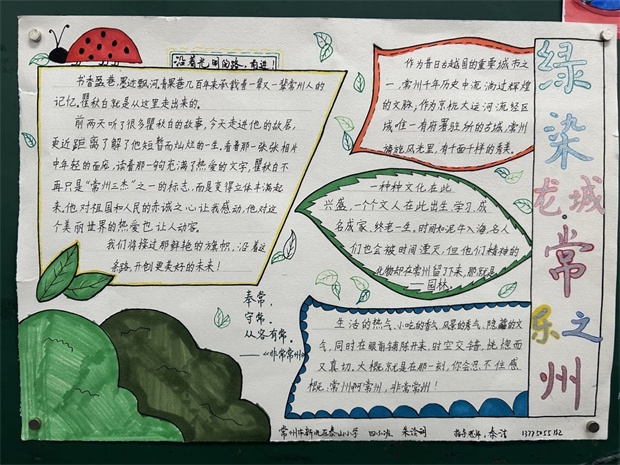 沿着光明的路，前进！
书香盈巷，墨迹飘河，青果巷几百年来承载着一辈又一辈常州人的
记忆。瞿秋白就是从这里走出来的。
前两天听了很多瞿秋白的故事，今天走进他的故居，
更近距离了解了他短暂而灿烂的一生，看着那一张张相片
中年轻的面店，读着那一句句充满了热爱的文字，瞿秋白不
再只是“常州三杰”之一的标志，而是变得立体丰满起
来，他对祖国和人民的赤诚之心让我感动，他对这
个美丽世界的热爱也让人动容。
我们将接过那鲜艳的旗帜，沿着这
条路，开创更美好的未来！
作为昔日古越国的重要城市之
一，常州千年历史中流淌过辉煌
的文脉，作为京杭大运河流经区
域唯一有府署驻所的古城，常州
独说风老里，有千面千样的秀美。
一种种文化在此
兴盛，一个个文人在此出生、学习、成
名成家、终老一生。时间如泥牛入海，名人
们也会被时间湮灭，但他们精神的
化物却在常州留了下来，那就是
——园林。
奉常，
守常，
从容有常。
——《非常常州》
生活的热气、小吃的香气、风景的秀气、隐藏的文
气，同时在眼前铺陈开来，时空交错，恍惚而
又真切，大概就是在那一刻，你会忍不住感
慨：常州啊常州，非常常州！
绿染龙城·常乐之州
常州市新北区泰山小学 四
指导老师：秦洁